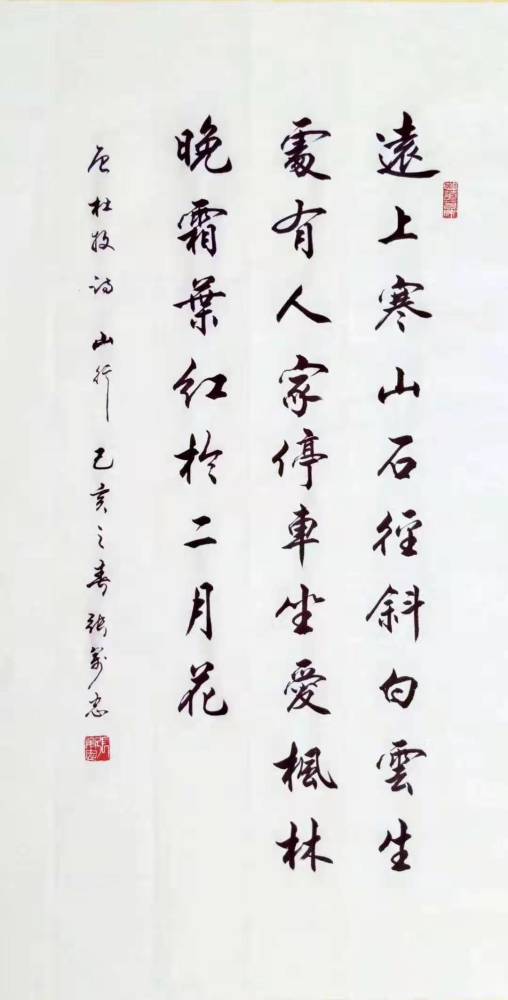 遠上寒山石徑斜白雲生
處有人家停車坐愛楓林
晚霜葉紅於二月花
唐杜牧詩 山行 己亥之春 張萬忠